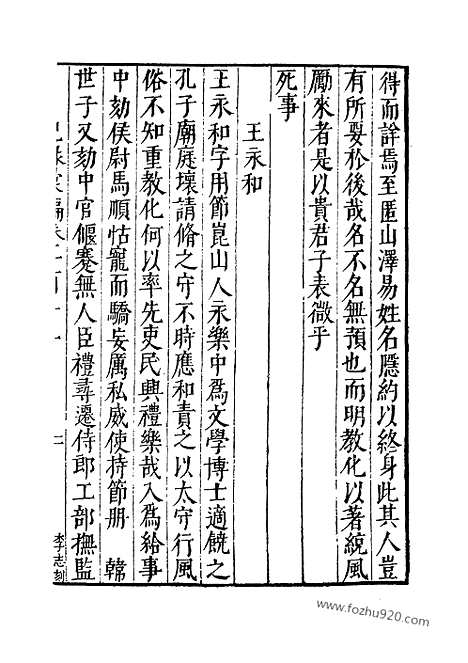 得而詳焉至匿山澤易姓名隱約以終身此其人豈
有所要於後哉名不名無預也而明教化以著統風
勵來者是以貴君子表微乎
死事
王永和
王永和字用節崑山人永樂中爲文學博士適饒之
孔子廟庭壞請脩之守不時應和責之以太守行風
俗不知重教化何以率先吏民興禮樂哉入爲給事
中劾侯尉馬順怙寵而驕妄厲私威使持節册 韓
世子又劾中官偃蹇無人臣禮尋遷侍郎工部撫監
二
李志刻
www.fozhu920.com